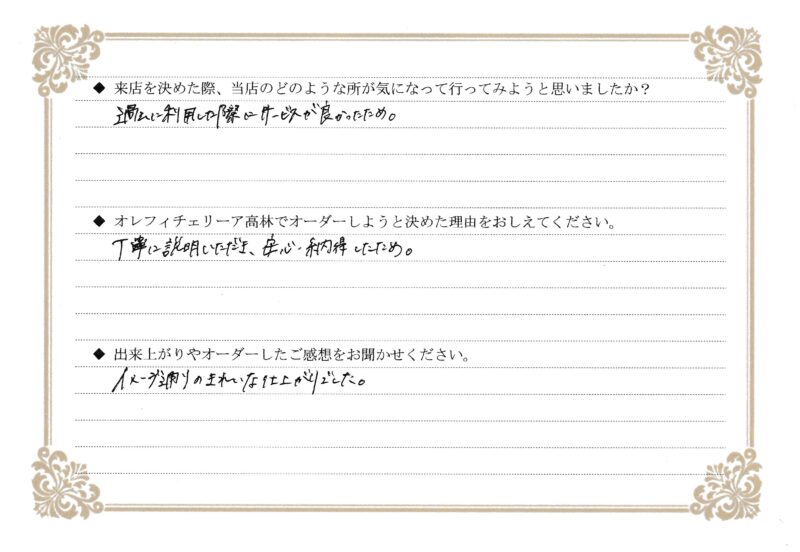 ◆ 来店を決めた際、当店のどのような所が気になって行ってみようと思いましたか？
過去に利用した際にサービスが良かったため。
◆ オレフィチェリーア高林でオーダーしようと決めた理由をおしえてください。
丁寧に説明いただき、安心・納得したため。
◆ 出来上がりやオーダーしたご感想をお聞かせください。
イメージ通りのきれいな仕上がりでした。